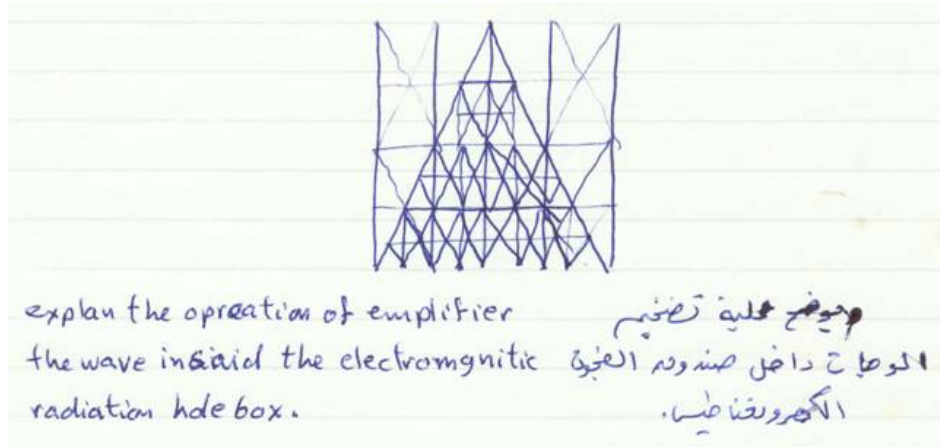 explan the opreation of emplifier
the wave insaid the electromgnitic
radiation hole box.
يوضح عملية تضخيم
الموجات داخل صندوق الفجوة
الكهرومغناطيس.